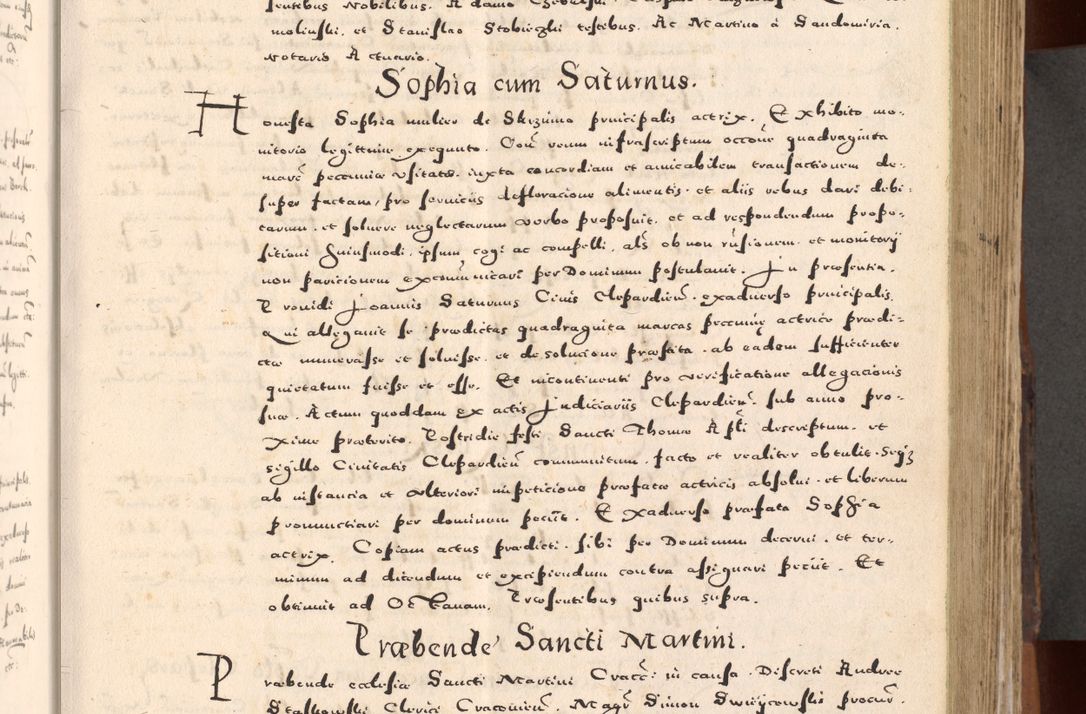 sentibus Nobilibus. Adamo
molinski. et Stanislao Stobieczki testibus. Ac Martino à Sandomiria.
Notario Actuario.
Sophia cum Saturnus.
Honesta Sophia mulier de Skizimo principalis actrix. Exhibito mo-
nitorio legittime exequuto. Coram rerum infrascriptum occone quadraginta
marc pecuniæ usitatæ iuxta concordiam et amicabilem transactionem de-
super factam, pro seruiciis defloracione alimentis. et aliis rebus dari debi-
tarum. et soluere neglectarum verbo proposuit. et ad respondendum propo-
sitioni huiusmodi. ipsum. cogi ac compelli, als ob non et monitorij
non paricionem excommunicari per Dominum postulauit. In præsentia.
Prouidi Joannis Saturnus Ciuis Clepardien. exaduerso principalis.
Qui allegauit se prædictas quadraginta marcas peccunię actrice prædi-
ctæ numerasse et soluisse. et de solucione præstita. ab eadem sufficienter
quietatum fuisse et esse. Et incontinenti pro verificatione allegacionis
suæ. Actum quoddam ex actis Judiciariis Clepardien. sub anno pro-
xime præterito. Postridie festi Sancti Thomæ Apli descriptum. et
sigillo Ciuitatis Clepardien communitum. facto et realiter obtulit. Seq3
ab instancia et vlteriori impeticione præfatæ actricis absolui. et liberum
pronunctiari per dominum peciit. Exaduerso præfata Sophia
actrix. Copiam actus prædicti. sibi per Dominum decerni. et ter-
minum ad dicendum et excipiendum contra assignari peciit. Et
obtinuit ad Octauam. Præsentibus quibus supra.
Præbende Sancti Martini.
Præbende ecclesiæ Sancti Martini Cracc: in causa. Discreti Andree
Stalkowski Clerici Cracouien. Magr Simon Swiiycowski procur.